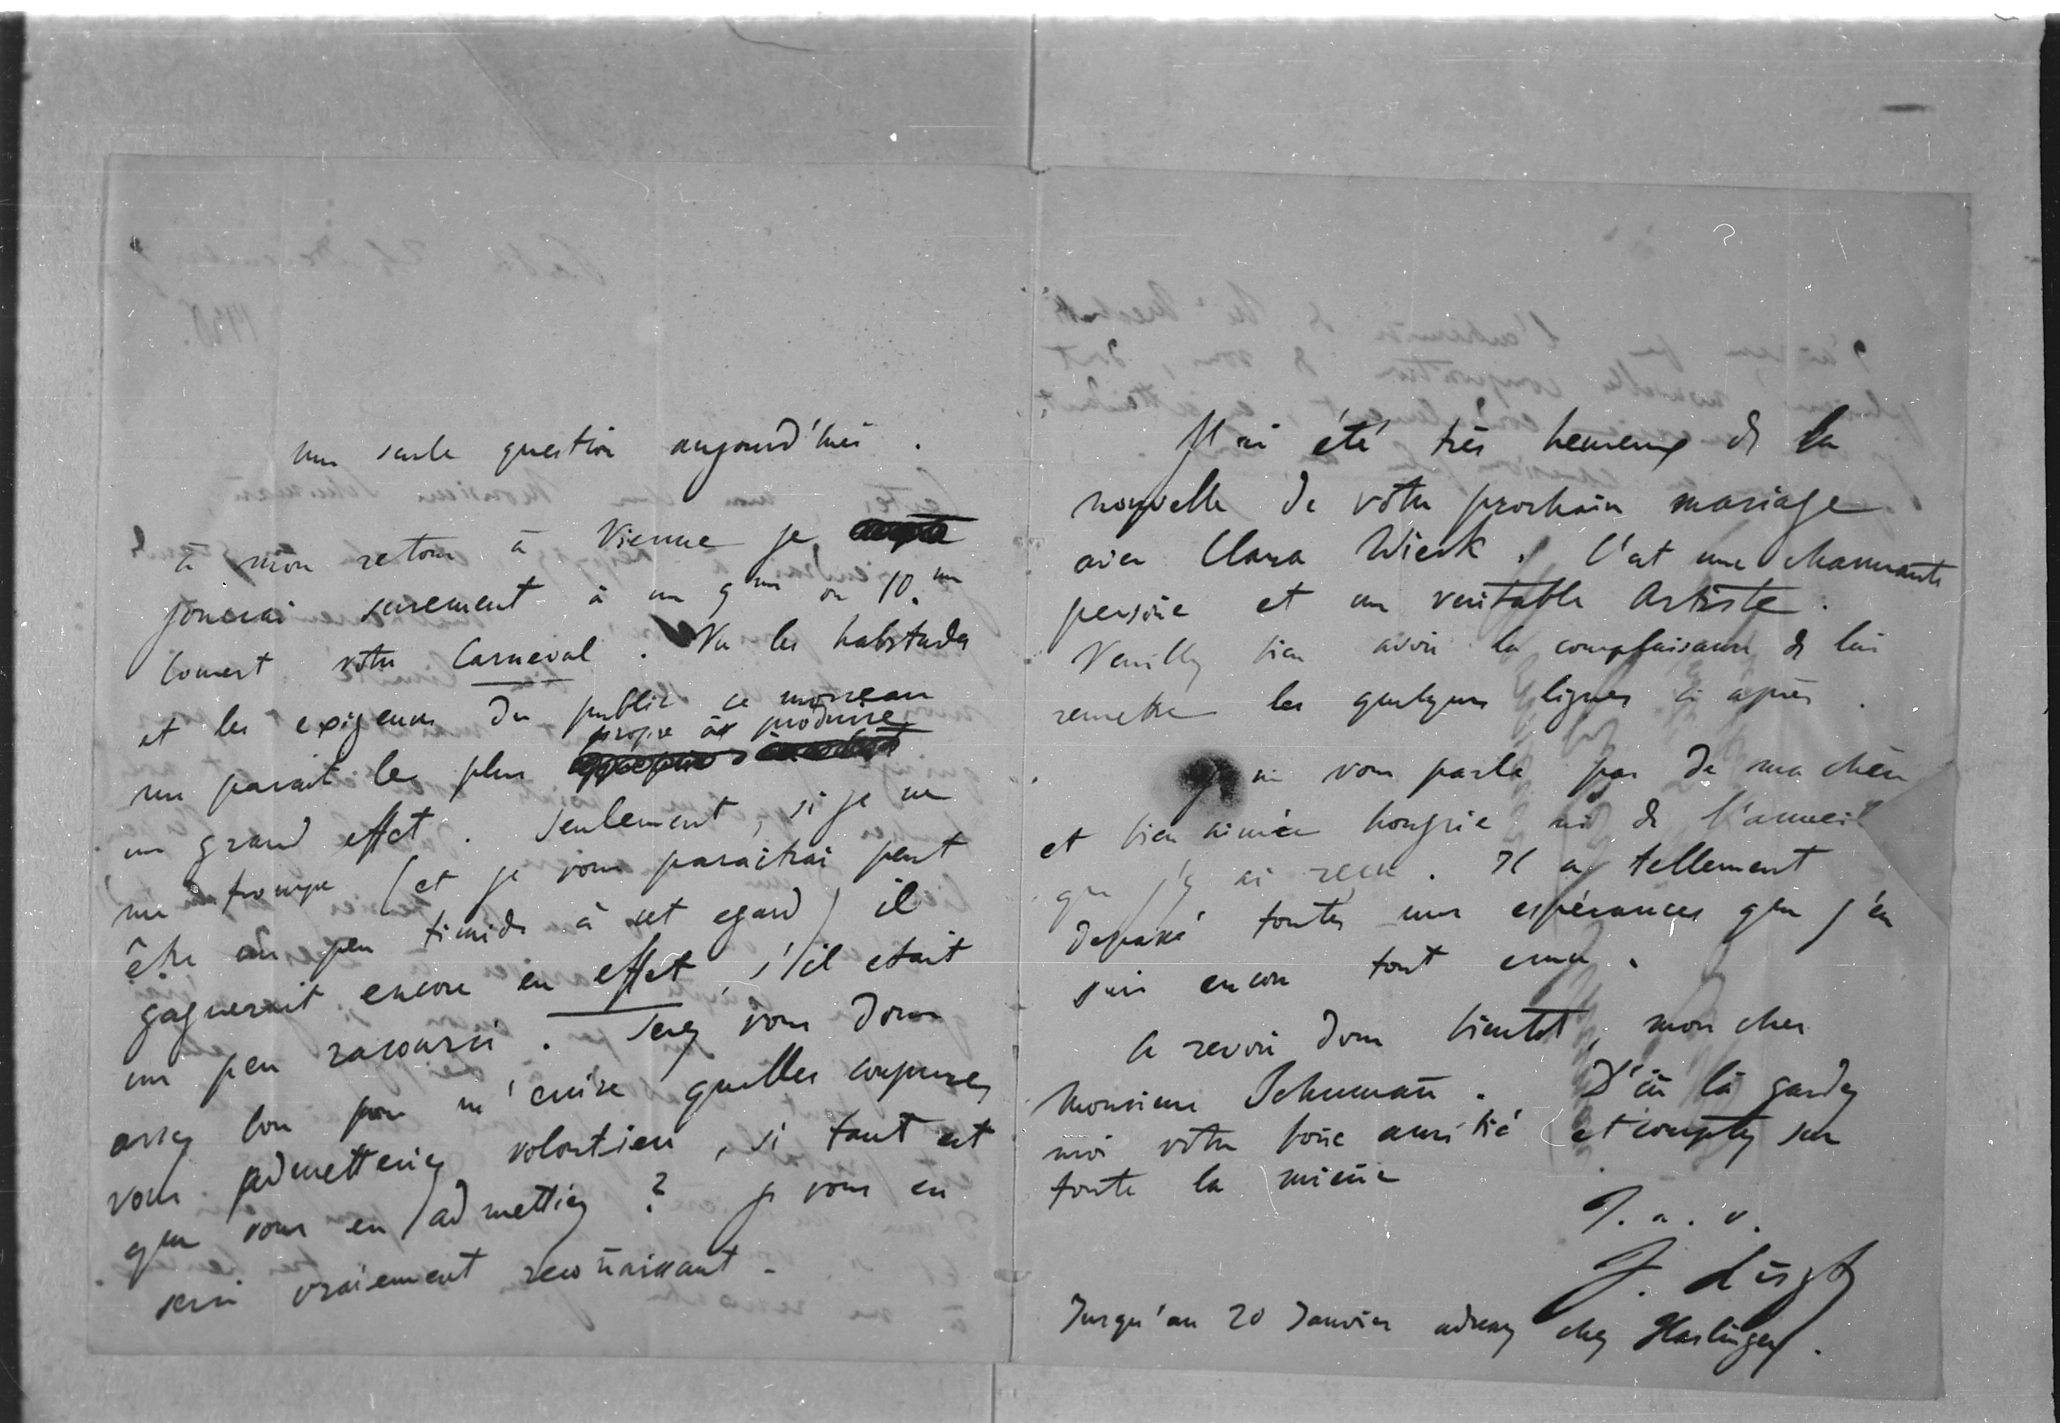 une seule question aujourd'hui .
à mon retour à Vienne je
jouerai surement à un 9me ou 10.me
Concert votre Carneval . Vu les habitudes
et les exigences du public ce morceau
propre à produire
me parait le plus
un grand effet . Seulement, si je ne
me trompe (et je vous paraitrai peut
être un peu timide à cet egard) il
gagnerait encore en effet, s'il etait
un peu racourci . Serez vous donc
assez bon pour m'ecrire quelles coupures
vous admetteriez volontiers, si tant est
que vous en admettiez ? je vous en
serai vraiement reconnaissant -
J'ai été très heureux de la
nouvelle de votre prochain mariage
avec Clara Wieck . C'est une charmante
persone et une veritable Artiste .
Veuillez bien avoir la complaisance de lui
remettre les quelques lignes ci après .
Je ne vous parle pas de ma chère
et bien aimée hongrie ni de l'accueil
que j'y ai recu . Il a tellement
depassé toutes mes espérances que j'en
suis encore tout emu .
A revoir donc bientot, mon cher
Monsieur Schuman̄ . D'ici là gardez
moi votre bon̄e amitié et comptez sur
toute la mien̄e
T. a. v.
F. Liszt
Jusqu'au 20 Janvier adressez chez Haslinger .